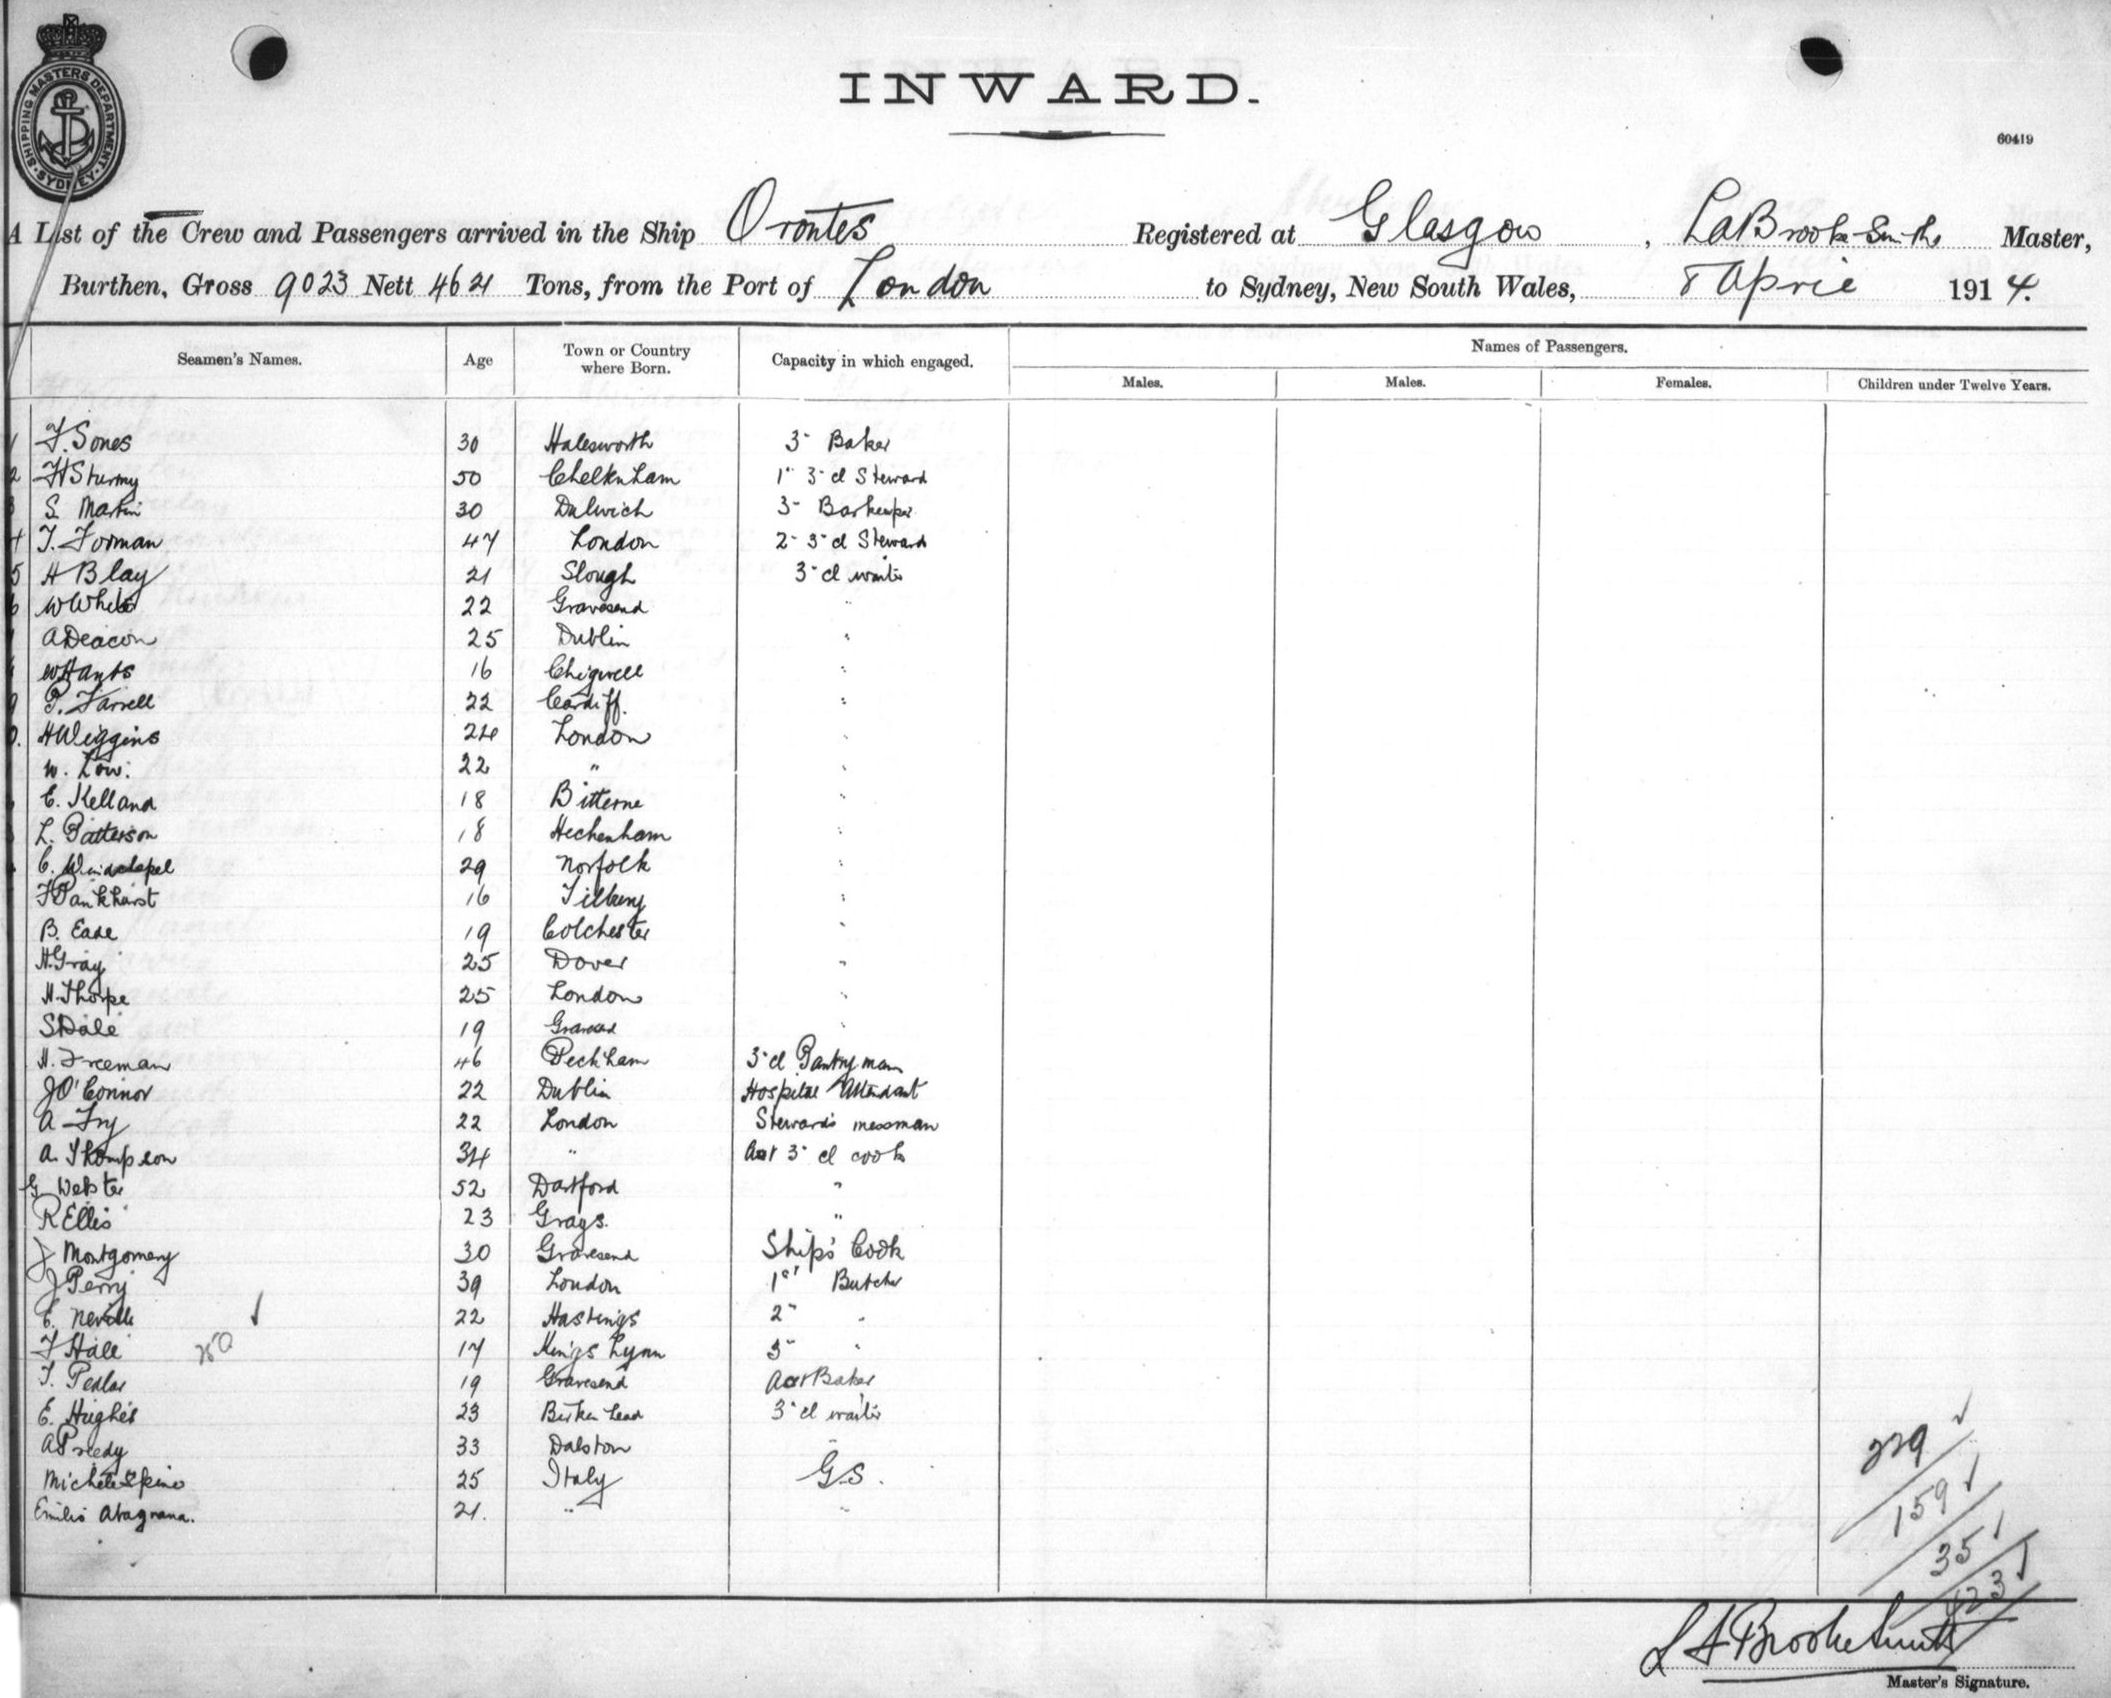 SHIPPING MASTERS DEPARTMENT
SYDNEY
INWARD.
60419
A List of the Crew and Passengers arrived in the Ship Orontes Registered at Glasgow, LA Brooke-Smith Master,
Burthen, Gross 9023 Nett 4621 Tons, from the Port of London to Sydney, New South Wales, 8 April 1914.
Seamen's Names. Age Town or Country where Born. Capacity in which engaged. Names of Passengers.
Males. Males. Females. Children under Twelve Years.
1 F. Sones 30 Halesworth 3" Baker
2 H Sturmy 50 Cheltenham 1" 3" cl Steward
3 S Martin 30 Dulwich 3" Barkeeper
4 T. Forman 47 London 2" 3" cl Steward
5 H Blay 21 Slough 3" cl waiter
6 W White 22 Gravesend "
A Deacon 25 Dublin "
W Hants 16 Chigwell "
9 P. Farrell 22 Cardiff. "
0. H Wiggins 24 London "
W. Low. 22 " "
E. Kelland 18 Bitterne "
L. Patterson 18 Heckenham "
C. 29 Norfolk "
F Pankhurst 16 Tilbury "
B. Eade 19 Colchester "
H. Gray 25 Dover "
H. Thorpe 25 London "
S Dale 19 Gravesend "
H. Freeman 46 Peckham 3" cl Pantryman
J O'Connor 22 Dublin Hospital Attendant
A Fry 22 London Stewards messman
A. Thompson 34 " Asst 3" cl cook
G Webster 52 Dartford "
R Ellis 23 Grays. "
J Montgomery 30 Gravesend Ship's Cook
J Perry 39 London 1st Butcher
E. Neville 22 Hastings 2" "
F Hale 17 Kings Lynn 3" "
T. Pedlar 19 Gravesend Asst Baker
E. Hughes 23 Birkenhead 3" cl waiter
A Preedy 33 Dalston "
Michele 25 Italy G.S.
Emilio 21. " "
229
159
35
423
L A Brooke Smith
Master's Signature.